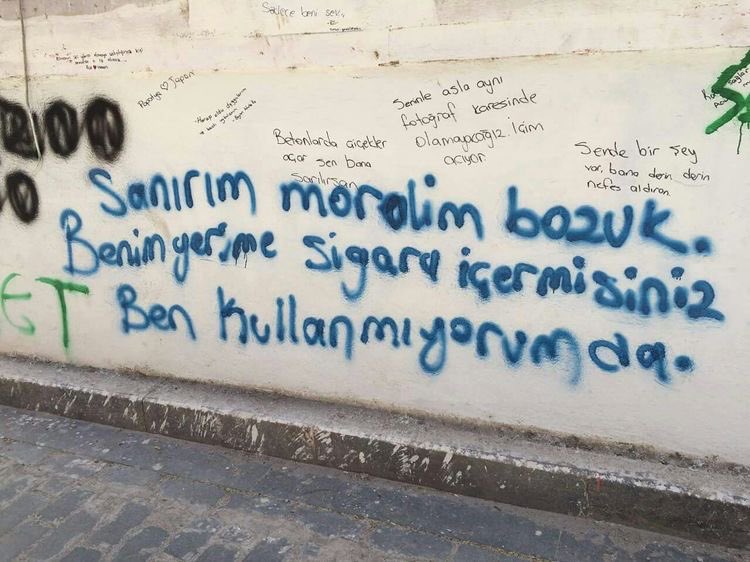 Sadece beni sev..
Papatya ♡ Japan
Seninle asla aynı
fotoğraf karesinde
Olamayacağız. İçim
acıyor.
Betonlarda çiçekler
açar sen bana
Sarılırsan
Sende bir şey
var, bana derin derin
nefes aldıran.
Sanırım moralim bozuk.
Benim yerime sigara içermisiniz
Ben kullanmıyorum da.
ET